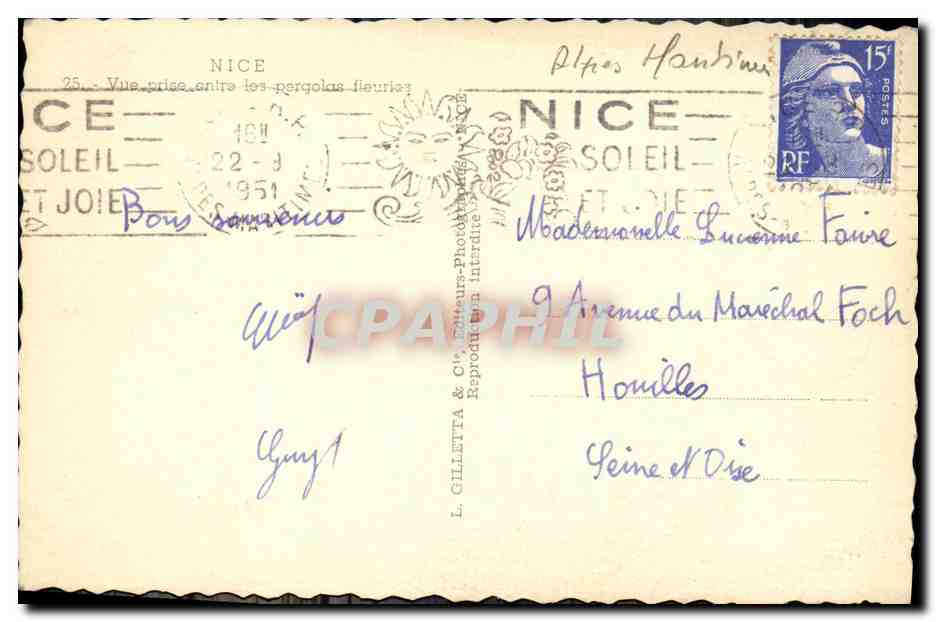 NICE
25. - Vue prise entre les pergolas fleuries
Alpes Maritimes
15F
POSTES
RF
ICE
SOLEIL
ET JOIE
22-9
1951
NICE
SOLEIL
ET JOIE
Bons souvenirs
Guy
L. GILLETTA & Cie, Editeurs-Photographes, NICE
Reproduction interdite
CPAPHIL
Mademoiselle Lucienne Faivre
9 Avenue du Maréchal Foch
Houilles
Seine et Oise